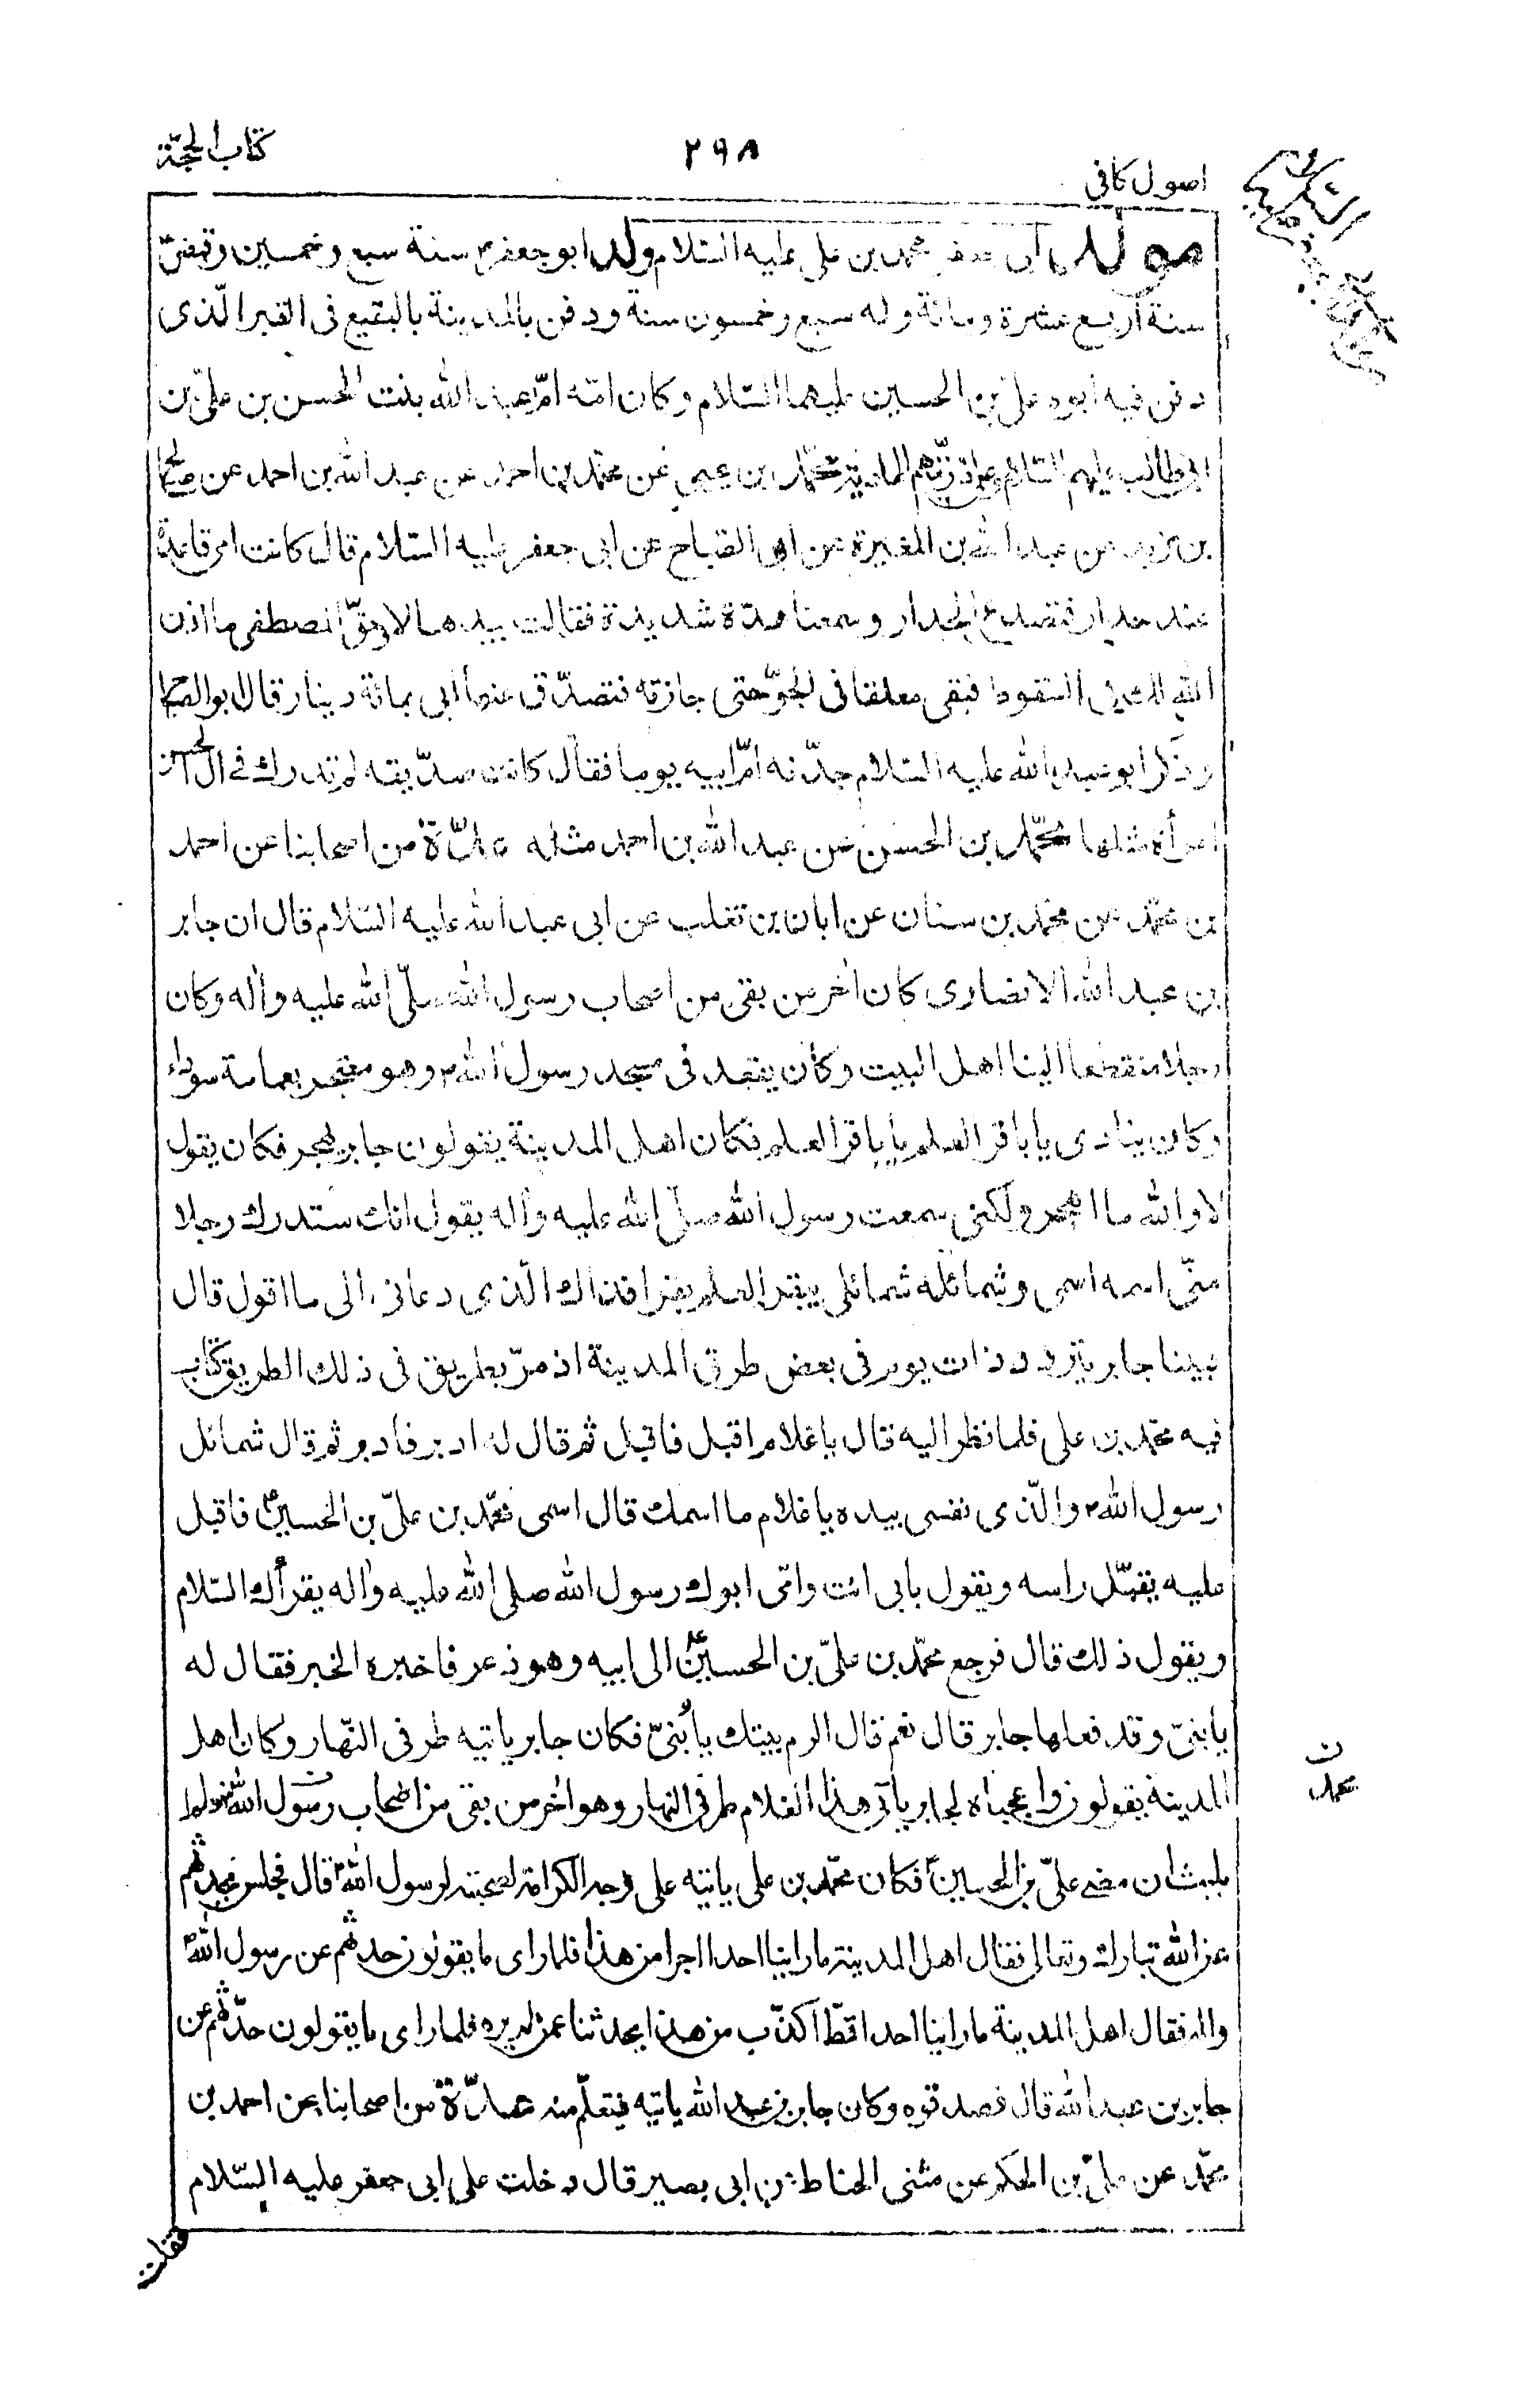 كتاب الحجّة
٢٩٨
اصول كافي
مولد ابى جعفر محمد بن على عليه السّلام ولد ابو جعفر ع سنة سبع وخمسين وقبض ع
سنة اربع عشرة ومائة وله سبع وخمسون سنة ودفن بالمدينة بالبقيع فى القبر الّذى
دفن فيه ابوه علىّ بن الحسين عليهما السّلام وكان امّه امّ عبد الله بنت الحسن بن علىّ بن
ابى طالب عليهم السّلام وعلى ذرّيّتهم الهادية محمّد بن يحيى عن محمّد بن احمد عن عبد الله بن احمد عن صالح
بن مزيد عن عبد الله بن المغيرة عن ابى الصّباح عن ابى جعفر عليه السّلام قال كانت امى قاعدة
عند جدار فتصدع الجدار وسمعنا هدّة شديدة فقالت بيدها لا وحقّ المصطفى ما اذن
الله لك فى السّقوط فبقى معلقا فى الجوّ حتى جازته فتصدّق عنها ابى بمائة دينار قال ابو الصباح
وذكر ابو عبد الله عليه السّلام جدّته امّ ابيه يوما فقال كانت صدّيقه لم تدرك فى ال الحسن
امرأة مثلها محمّد بن الحسن عن عبد الله بن احمد مثله عدّة من اصحابنا عن احمد
بن محمّد عن محمّد بن سنان عن ابان بن تغلب عن ابى عبد الله عليه السّلام قال ان جابر
بن عبد الله الانصارى كان اخر من بقى من اصحاب رسول الله صلّى الله عليه واله وكان
رجلا منقطعا الينا اهل البيت وكان يقعد فى مسجد رسول الله ص وهو معتجر بعمامة سوداء
وكان ينادى يا باقر العلم يا باقر العلم فكان اهل المدينة يقولون جابر يهجر فكان يقول
لا والله ما اهجر ولكنى سمعت رسول الله صلّى الله عليه واله يقول انك ستدرك رجلا
منّى اسمه اسمى وشمائله شمائلى يبقر العلم بقرا فذاك الّذى دعانى الى ما اقول قال
فبينا جابر يتردد ذات يوم فى بعض طرق المدينة اذ مرّ بطريق فى ذلك الطريق كتاب
فيه محمّد بن على فلما نظر اليه قال يا غلام اقبل فاقبل ثم قال له ادبر فادبر ثم قال شمائل
رسول الله ص والّذى نفسى بيده يا غلام ما اسمك قال اسمى محمّد بن علىّ بن الحسين ع فاقبل
عليه يقبّل راسه ويقول بابى انت وامّى ابوك رسول الله صلى الله عليه واله يقرأك السّلام
ويقول ذلك قال فرجع محمّد بن علىّ بن الحسين ع الى ابيه وهو ذعر فاخبره الخبر فقال له
يا بنىّ وقد فعلها جابر قال نعم قال الزم بيتك يا بُنىّ فكان جابر ياتيه طرفى النّهار وكان اهل
المدينة يقولون واعجباه لجابر يأتى هذا الغلام طرفى النهار وهو اخر من بقى من اصحاب رسول الله ص ولم
يلبث ان مضى علىّ بن الحسين ع فكان محمّد بن على ياتيه على وجه الكرامة لصحبته لرسول الله ص قال فجلس يحدثهم
عن الله تبارك وتعالى فقال اهل المدينة ما راينا احدا اجرا من هذا فلما راى ما يقولون حدثهم عن رسول الله ص
واله فقال اهل المدينة ما راينا احدا قطّ اكذب من هذا يحدثنا عمن لم يره فلما راى ما يقولون حدّثهم عن
جابر بن عبد الله قال فصدقوه وكان جابر بن عبد الله ياتيه فيتعلّم منه عدّة من اصحابنا عن احمد بن
محمّد عن علىّ بن الحكم عن مثنى الحناط عن ابى بصير قال دخلت على ابى جعفر عليه السّلام
فقلت
ن
محمد